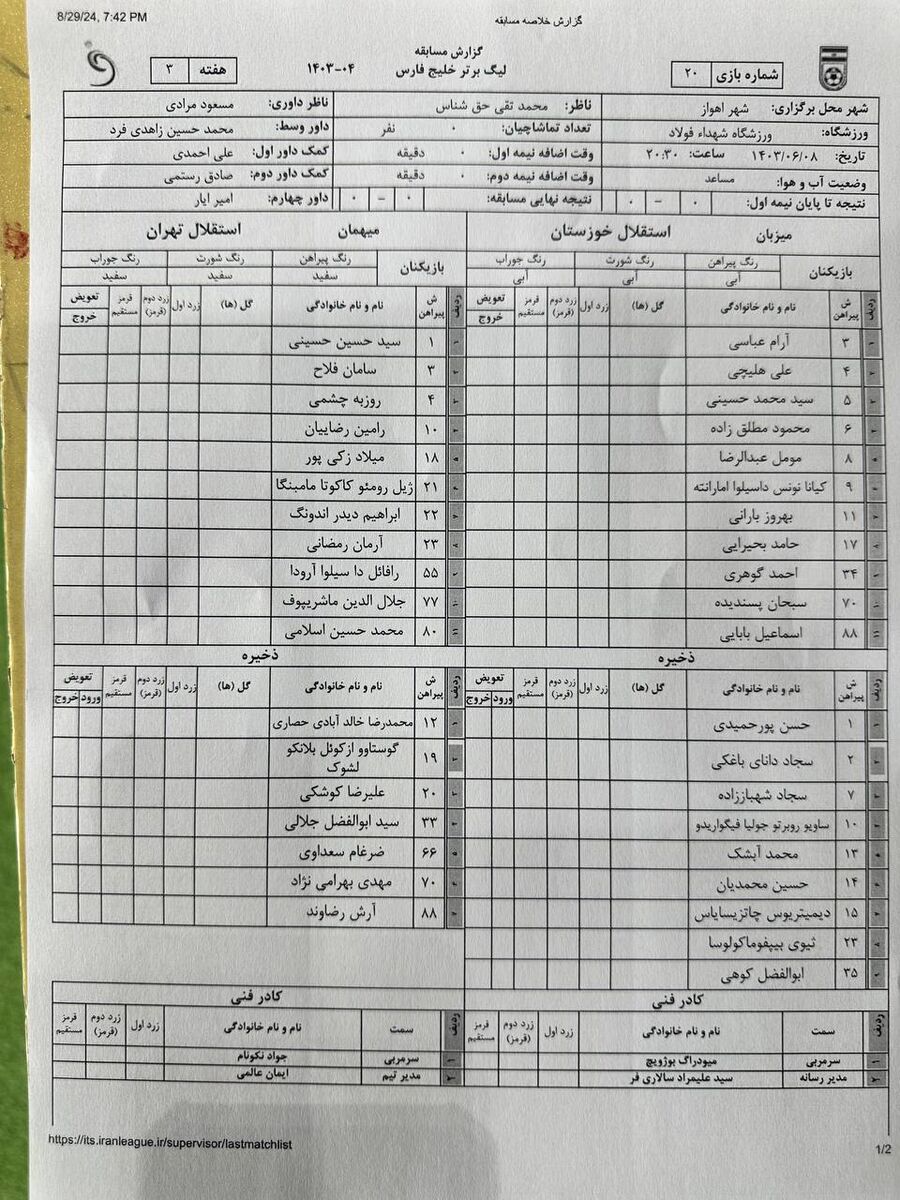 8/29/24, 7:42 PM
گزارش خلاصه مسابقه
گزارش مسابقه
لیگ برتر خلیج فارس ۱۴۰۳-۰۴
شماره بازی ۲۰
هفته ۳
شهر محل برگزاری: شهر اهواز ناظر: محمد تقی حق شناس ناظر داوری: مسعود مرادی
ورزشگاه: ورزشگاه شهداء فولاد تعداد تماشاچیان: ۰ نفر داور وسط: محمد حسین زاهدی فرد
تاریخ: ۱۴۰۳/۰۶/۰۸ ساعت: ۲۰:۳۰ وقت اضافه نیمه اول: ۰ دقیقه کمک داور اول: علی احمدی
وضعیت آب و هوا: مساعد وقت اضافه نیمه دوم: ۰ دقیقه کمک داور دوم: صادق رستمی
نتیجه تا پایان نیمه اول: ۰ - ۰ نتیجه نهایی مسابقه: ۰ - ۰ داور چهارم: امیر ایار
میزبان استقلال خوزستان
بازیکنان رنگ پیراهن رنگ شورت رنگ جوراب
آبی آبی آبی
ردیف ش پیراهن نام و نام خانوادگی گل (ها) زرد اول زرد دوم (قرمز) قرمز مستقیم تعویض خروج
۱ ۳ آرام عباسی
۲ ۴ علی هلیچی
۳ ۵ سید محمد حسینی
۴ ۶ محمود مطلق زاده
۵ ۸ مومل عبدالرضا
۶ ۹ کیانا نونس داسیلوا امارانته
۷ ۱۱ بهروز بارانی
۸ ۱۷ حامد بحیرایی
۹ ۳۴ احمد گوهری
۱۰ ۷۰ سبحان پسندیده
۱۱ ۸۸ اسماعیل بابایی
ذخیره
ردیف ش پیراهن نام و نام خانوادگی گل (ها) زرد اول زرد دوم (قرمز) قرمز مستقیم تعویض ورود خروج
۱ ۱ حسن پورحمیدی
۲ ۲ سجاد دانای باغکی
۳ ۷ سجاد شهباززاده
۴ ۱۰ ساویو روبرتو جولیا فیگواریدو
۵ ۱۳ محمد آبشک
۶ ۱۴ حسین محمدیان
۷ ۱۵ دیمیتریوس چاتزیسایاس
۸ ۲۳ ثیوی بیپفوماکولوسا
۹ ۳۵ ابوالفضل کوهی
کادر فنی
ردیف سمت نام و نام خانوادگی زرد اول زرد دوم (قرمز) قرمز مستقیم
۱ سرمربی میودراگ بوژویچ
۲ مدیر رسانه سید علیمراد سالاری فر
میهمان استقلال تهران
بازیکنان رنگ پیراهن رنگ شورت رنگ جوراب
سفید سفید سفید
ردیف ش پیراهن نام و نام خانوادگی گل (ها) زرد اول زرد دوم (قرمز) قرمز مستقیم تعویض خروج
۱ ۱ سید حسین حسینی
۲ ۳ سامان فلاح
۳ ۴ روزبه چشمی
۴ ۱۰ رامین رضاییان
۵ ۱۸ میلاد زکی پور
۶ ۲۱ ژیل رومئو کاکوتا مامبنگا
۷ ۲۲ ابراهیم دیدر اندونگ
۸ ۲۳ آرمان رمضانی
۹ ۵۵ رافائل دا سیلوا آرودا
۱۰ ۷۷ جلال الدین ماشریپوف
۱۱ ۸۰ محمد حسین اسلامی
ذخیره
ردیف ش پیراهن نام و نام خانوادگی گل (ها) زرد اول زرد دوم (قرمز) قرمز مستقیم تعویض ورود خروج
۱ ۱۲ محمدرضا خالد آبادی حصاری
۲ ۱۹ گوستاوو ازکوئل بلانکو
لشوک
۳ ۲۰ علیرضا کوشکی
۴ ۳۳ سید ابوالفضل جلالی
۵ ۶۶ ضرغام سعداوی
۶ ۷۰ مهدی بهرامی نژاد
۷ ۸۸ آرش رضاوند
کادر فنی
ردیف سمت نام و نام خانوادگی زرد اول زرد دوم (قرمز) قرمز مستقیم
۱ سرمربی جواد نکونام
۲ مدیر تیم ایمان عالمی
https://its.iranleague.ir/supervisor/lastmatchlist
1/2